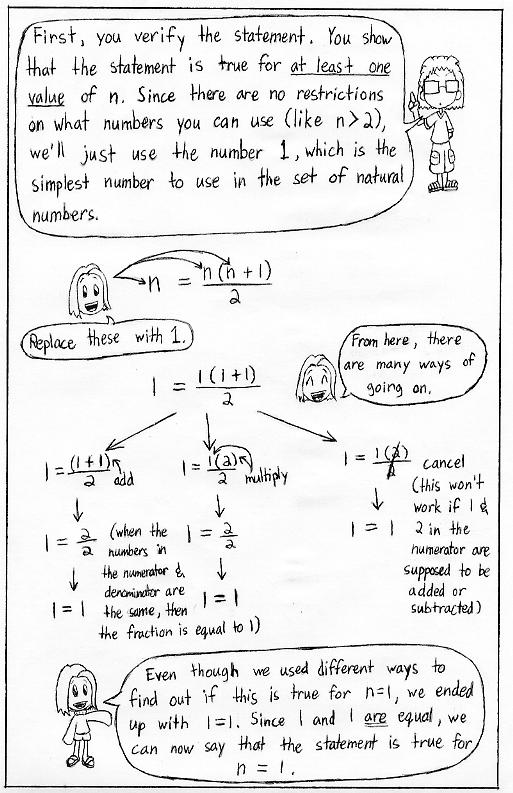 First, you verify the statement. You show
that the statement is true for at least one
value of n. Since there are no restrictions
on what numbers you can use (like n>2),
we'll just use the number 1, which is the
simplest number to use in the set of natural
numbers.
n = n(n+1)/2
Replace these with 1.
From here, there
are many ways of
going on.
1 = 1(1+1)/2
1 = (1+1)/2 add
1 = 2/2 (when the
numbers in
the numerator &
denominator are
the same, then
the fraction is equal to 1)
1 = 1
1 = 1(2)/2 multiply
1 = 2/2
1 = 1
1 = 1(2)/2 cancel
(this won't
work if 1 &
2 in the
numerator are
supposed to be
added or
subtracted)
1 = 1
Even though we used different ways to
find out if this is true for n=1, we ended
up with 1=1. Since 1 and 1 are equal, we
can now say that the statement is true for
n = 1.